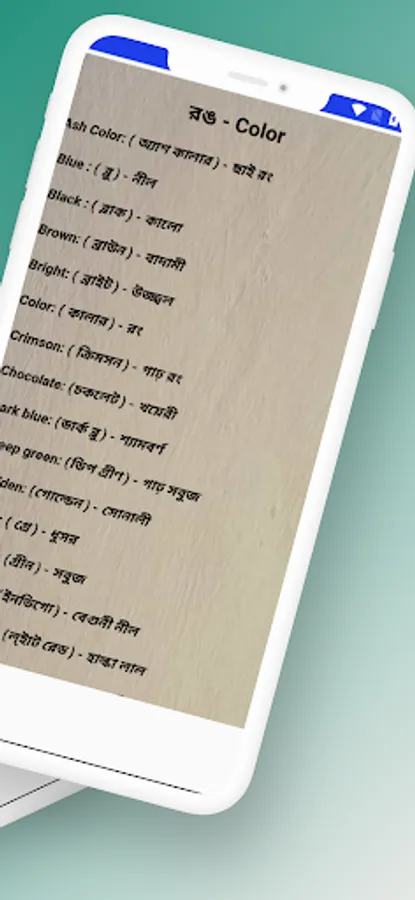 রঙ - Color
Ash Color: ( অ্যাশ কালার ) - ছাই রং
Blue : ( ব্লু ) - নীল
Black : ( ব্লাক ) - কালো
Brown: ( ব্রাউন ) - বাদামী
Bright: ( ব্রাইট ) - উজ্জ্বল
Color: ( কালার ) - রং
Crimson: ( ক্রিমসন ) - গাঢ় রং
Chocolate: (চকলেট ) - খয়েরী
ark blue: (ডার্ক ব্লু ) - শ্যামবর্ণ
eep green: (ডিপ গ্রীণ ) - গাঢ় সবুজ
lden: (গোল্ডেন ) - সোনালী
: ( গ্রে ) - ধূসর
(গ্রীন ) - সবুজ
(ইনডিগো ) - বেগুনী নীল
(লাইট রেড ) - হাল্কা লাল